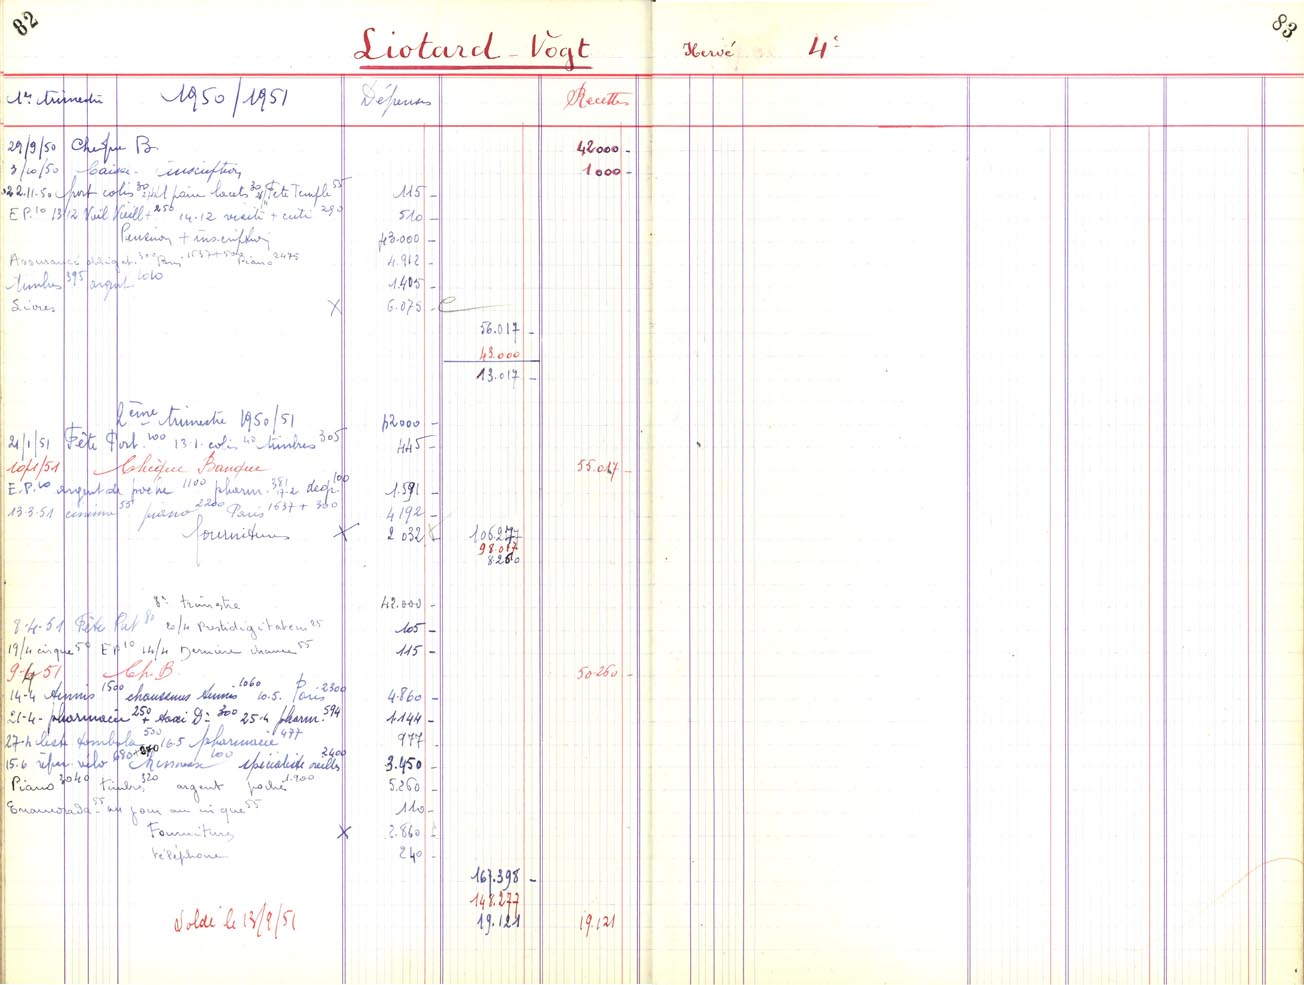 82
83
Liotard - Vogt Hervé 4e
1er trimestre 1950/1951 Dépenses Recettes
29/9/50 Chèque B. 42000 -
3/10/50 Caisse - inscription 1000 -
22.11.50 port colis 30 1 paire lacets 30 Fête Temple 55 115 -
E P. 10 13-12 Vieill + 250 14-12 visite + cuti 290 510 -
Pension + inscription 43.000 -
Assurance obligat. 300 1637 + 500 Piano 2475 4.912 -
timbres 395 argent 1010 1.405 -
Livres X 6.075 -
56.017 -
43.000
13.017 -
2ème trimestre 1950/51 42000 -
21/1/51 Fête Port. 100 13-1- colis 40 timbres 305 445 -
10/1/51 Chèque Banque 55.017 -
E.P. 10 argent de poche 1100 pharm. 381 17-2 100 1.591 -
13-3-51 cinéma 55 piano 2200 Paris 1637 + 300 4192 -
fournitures X 2 032 106.277
98.017
8260
3e trimestre 42.000 -
8-4-51 Fête 80 20/4 Prestidigitateur 25 105 -
19/4 cirque 50 E P 10 14/4 Dernière chance 55 115 -
9-4 51 Ch. B. 50.260 -
14-4 tennis 1500 chaussures tennis 1060 10.5. Paris 2300 4.860 -
21-4- pharmacie 250 + taxi Dr 300 25-4 pharm. 594 1.144 -
27-4 tombola 500 16.5 pharmacie 477 977 -
15.6 répar. vélo 680 + 100 spécialiste oreilles 2400 3.450 -
Piano 3040 timbres 320 argent poche 1.900 5.260 -
Enamorada 55 un jour au cirque 55 110 -
Fournitures X 2.860
téléphone 240 -
167.398 -
148.277
Soldé le 13/9/51 19.121 19.121